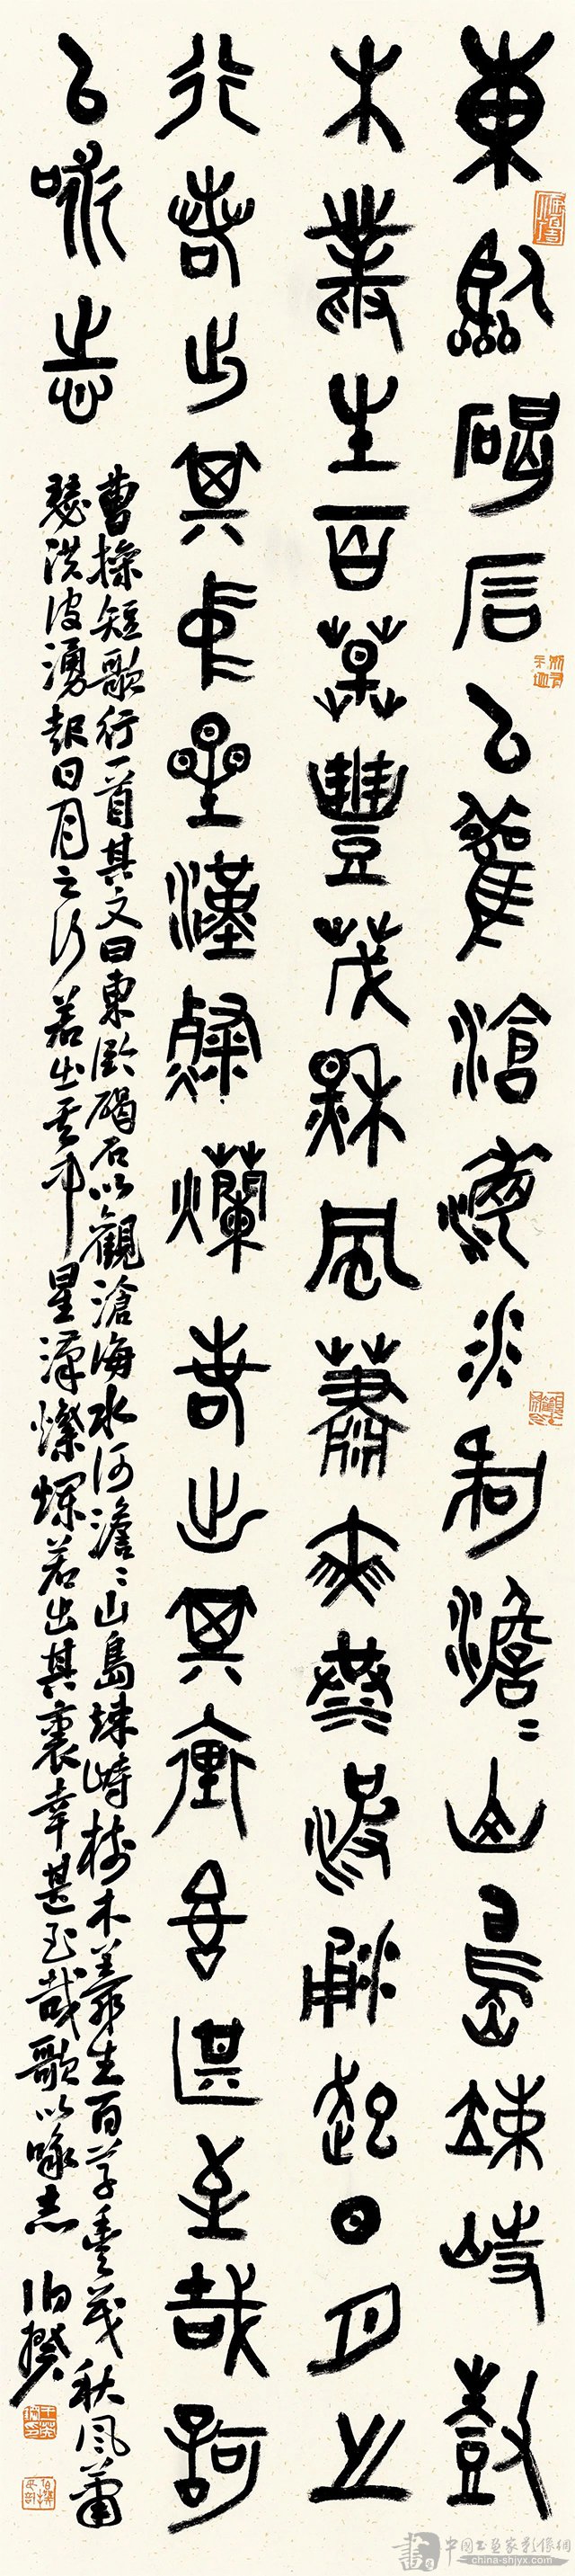 東臨碣石以觀滄海水何澹〻山島竦峙樹
木叢生百草豐茂秋風蕭瑟洪波涌起日月之
行若出其中星漢燦爛若出其裏幸甚至哉歌
以咏志
曹操短歌行一首其文曰東臨碣石以觀滄海水何澹〻山島竦峙樹木叢生百草豐茂秋風蕭
瑟洪波湧起日月之行若出其中星漢燦爛若出其裏幸甚至哉歌以咏志
中国书画家影像網
china-shjyx.com